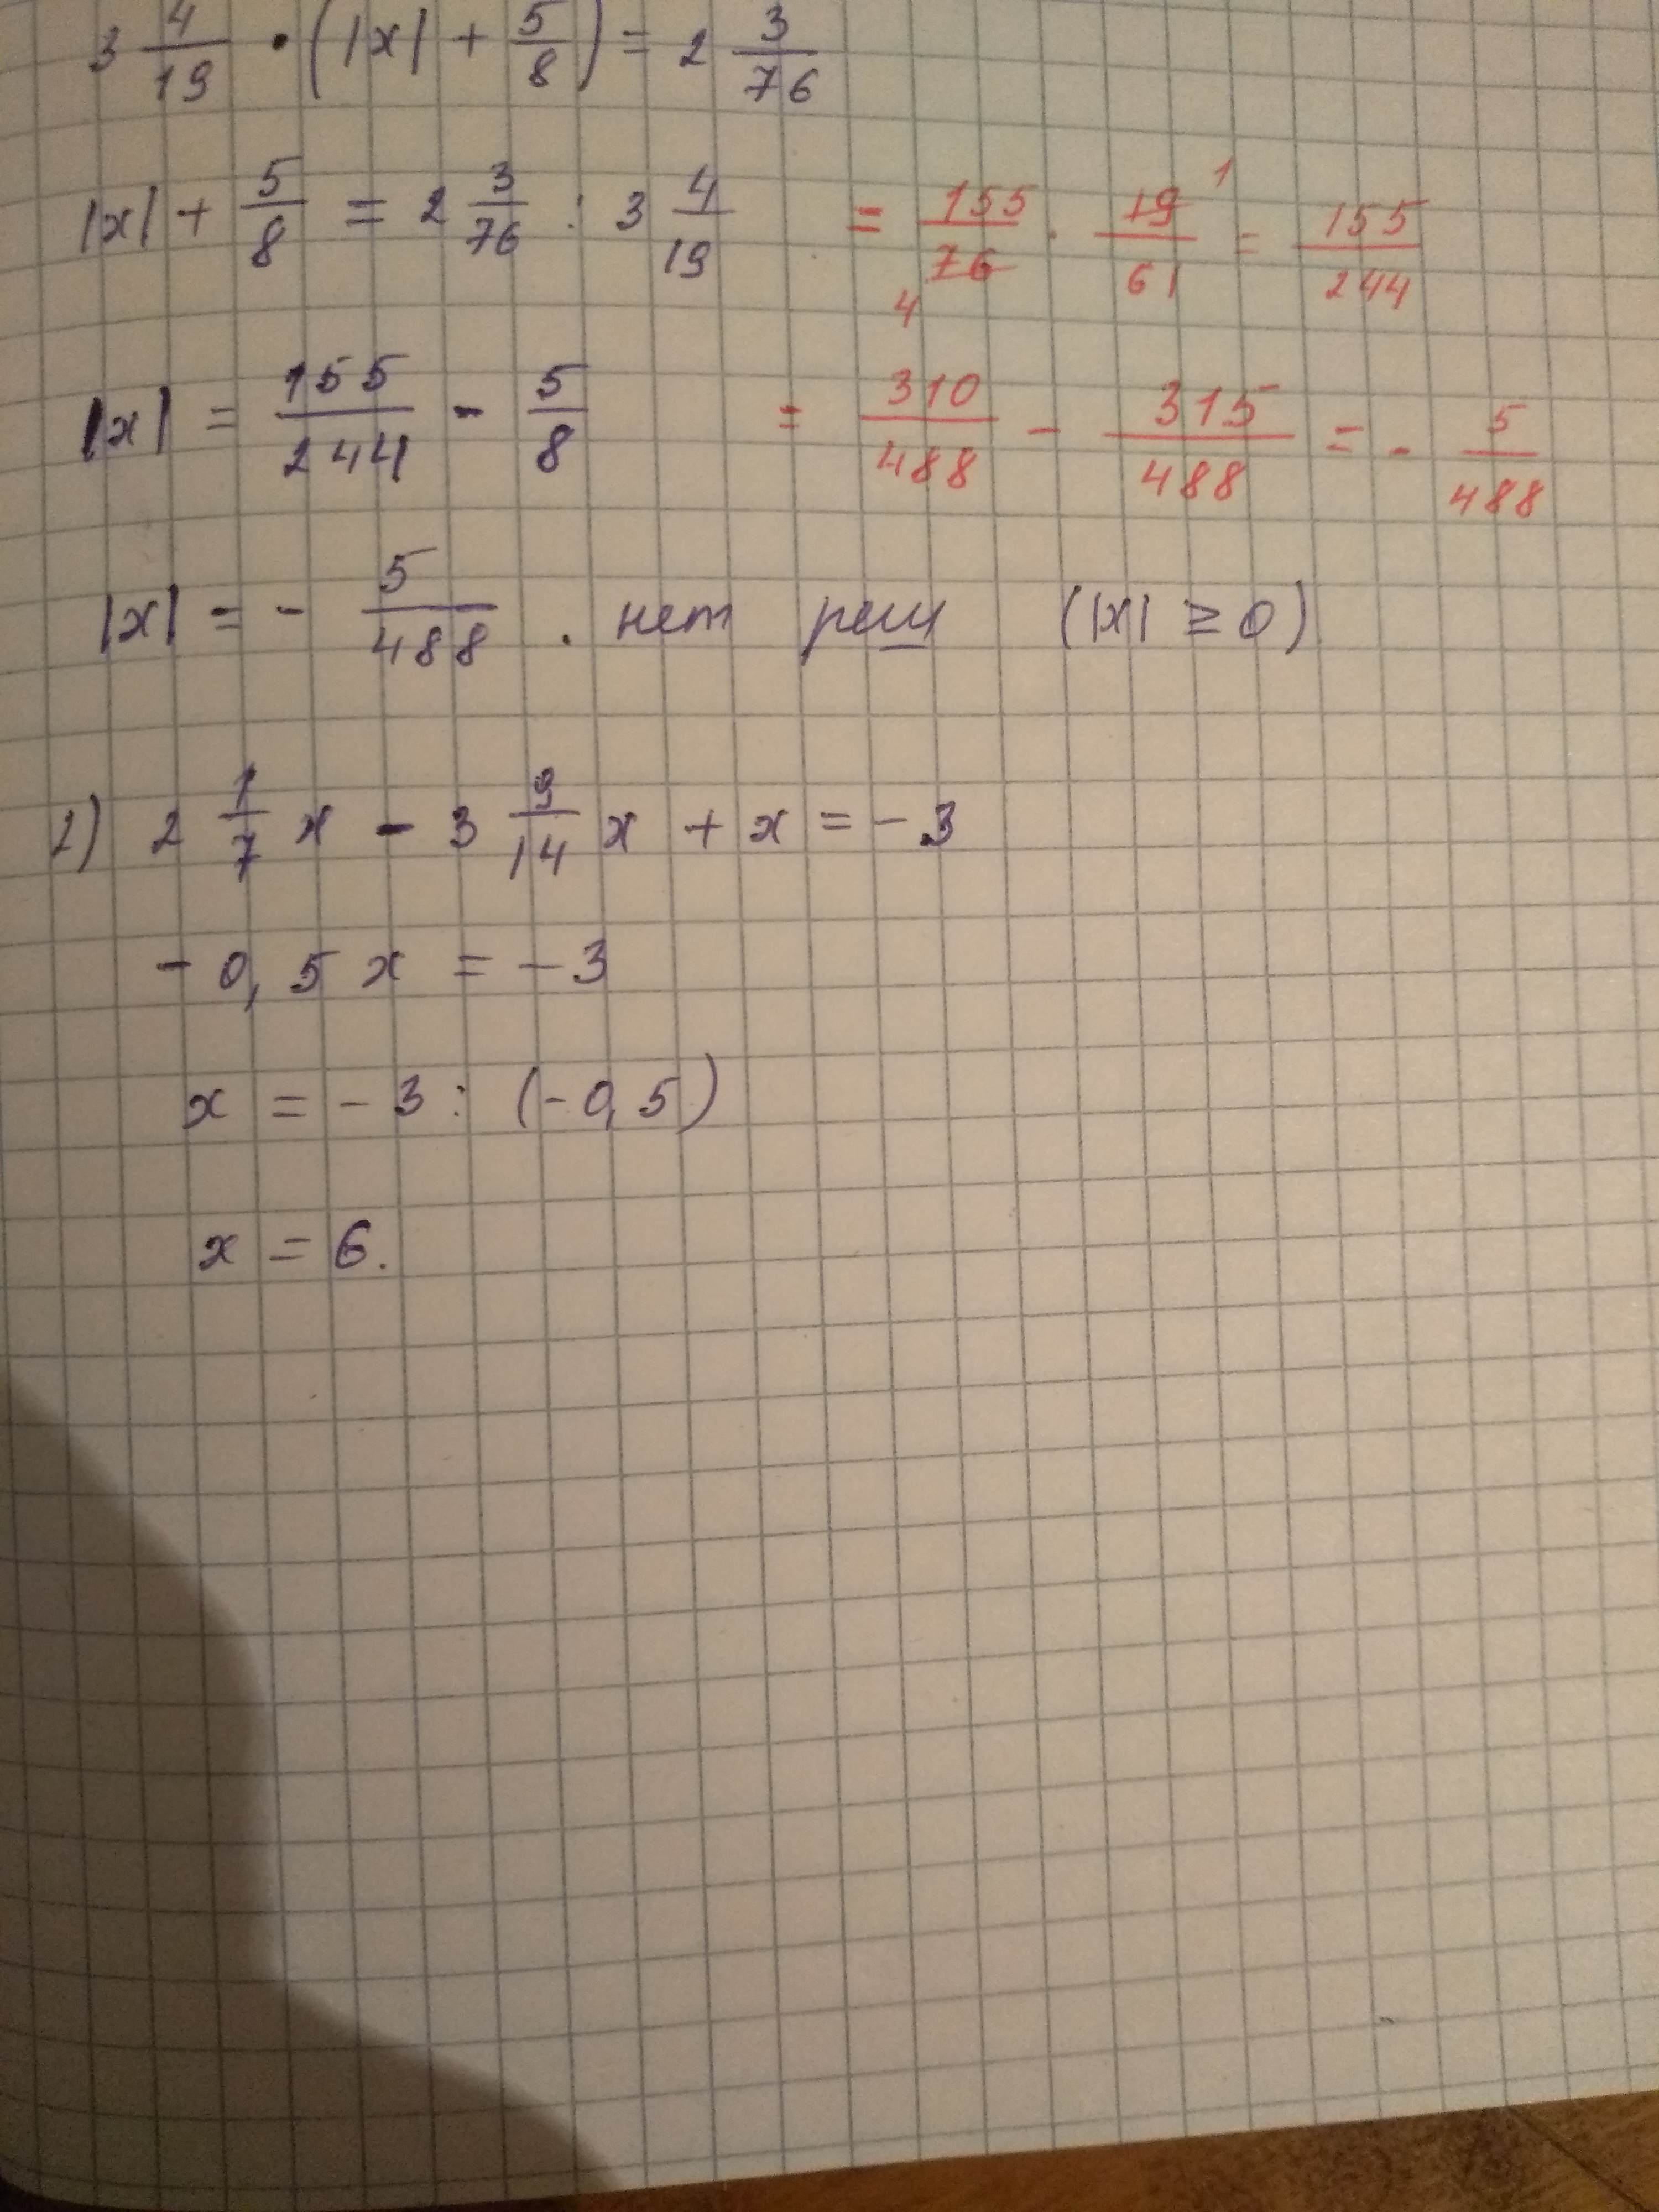 3 4/19 · (|x| + 5/8) = 2 3/76
|x| + 5/8 = 2 3/76 : 3 4/19 = 155/76 · 19/61 = 155/244
4 1
|x| = 155/244 - 5/8 = 310/488 - 315/488 = - 5/488
|x| = - 5/488 . нет реш (|x| ≥ 0)
2) 2 1/7 x - 3 9/14 x + x = - 3
- 0,5 x = - 3
x = - 3 : (- 0,5)
x = 6.